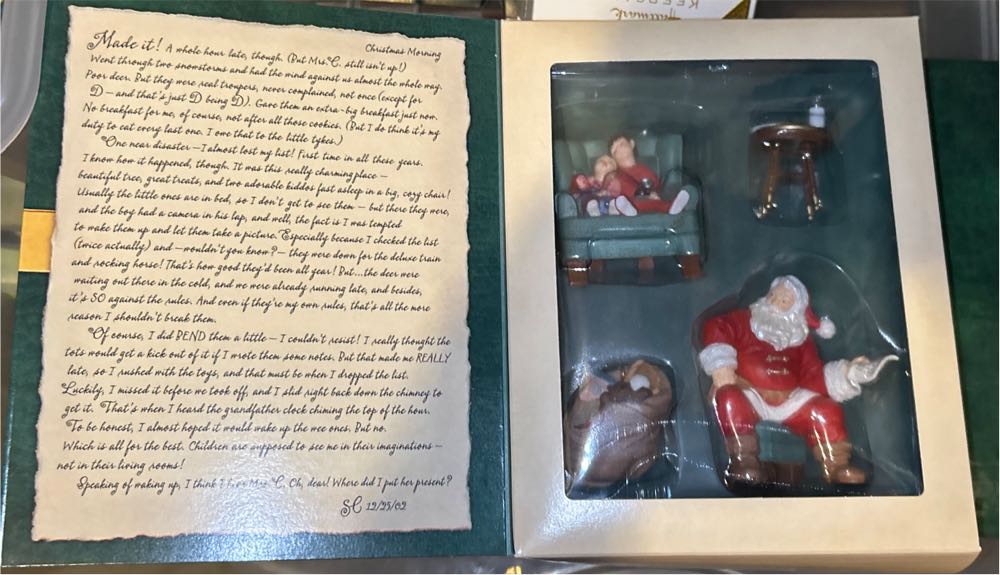 Hallmark
KEEPS
Christmas Morning
Made it! A whole hour late, though. (But Mrs. C. still isn't up!)
Went through two snowstorms and had the wind against us almost the whole way.
Poor deer. But they were real troupers, never complained, not once (except for
D—and that's just D being D). Gave them an extra-big breakfast just now.
No breakfast for me, of course, not after all those cookies. (But I do think it's my
duty to eat every last one. I owe that to the little tykes.)
One near disaster—I almost lost my list! First time in all these years.
I know how it happened, though. It was this really charming place—
beautiful tree, great treats, and two adorable kiddos fast asleep in a big, cozy chair!
Usually the little ones are in bed, so I don't get to see them—but there they were,
and the boy had a camera in his lap, and well, the fact is I was tempted
to wake them up and let them take a picture. Especially because I checked the list
(twice actually) and—wouldn't you know?—they were down for the deluxe train
and rocking horse! That's how good they'd been all year! But...the deer were
waiting out there in the cold, and we were already running late, and besides,
it's SO against the rules. And even if they're my own rules, that's all the more
reason I shouldn't break them.
Of course, I did BEND them a little—I couldn't resist! I really thought the
tots would get a kick out of it if I wrote them some notes. But that made me REALLY
late, so I rushed with the toys, and that must be when I dropped the list.
Luckily, I missed it before we took off, and I slid right back down the chimney to
get it. That's when I heard the grandfather clock chiming the top of the hour.
To be honest, I almost hoped it would wake up the wee ones. But no.
Which is all for the best. Children are supposed to see me in their imaginations—
not in their living rooms!
Speaking of waking up, I think I hear Mrs. C. Oh, dear! Where did I put her present?
SC 12/25/02